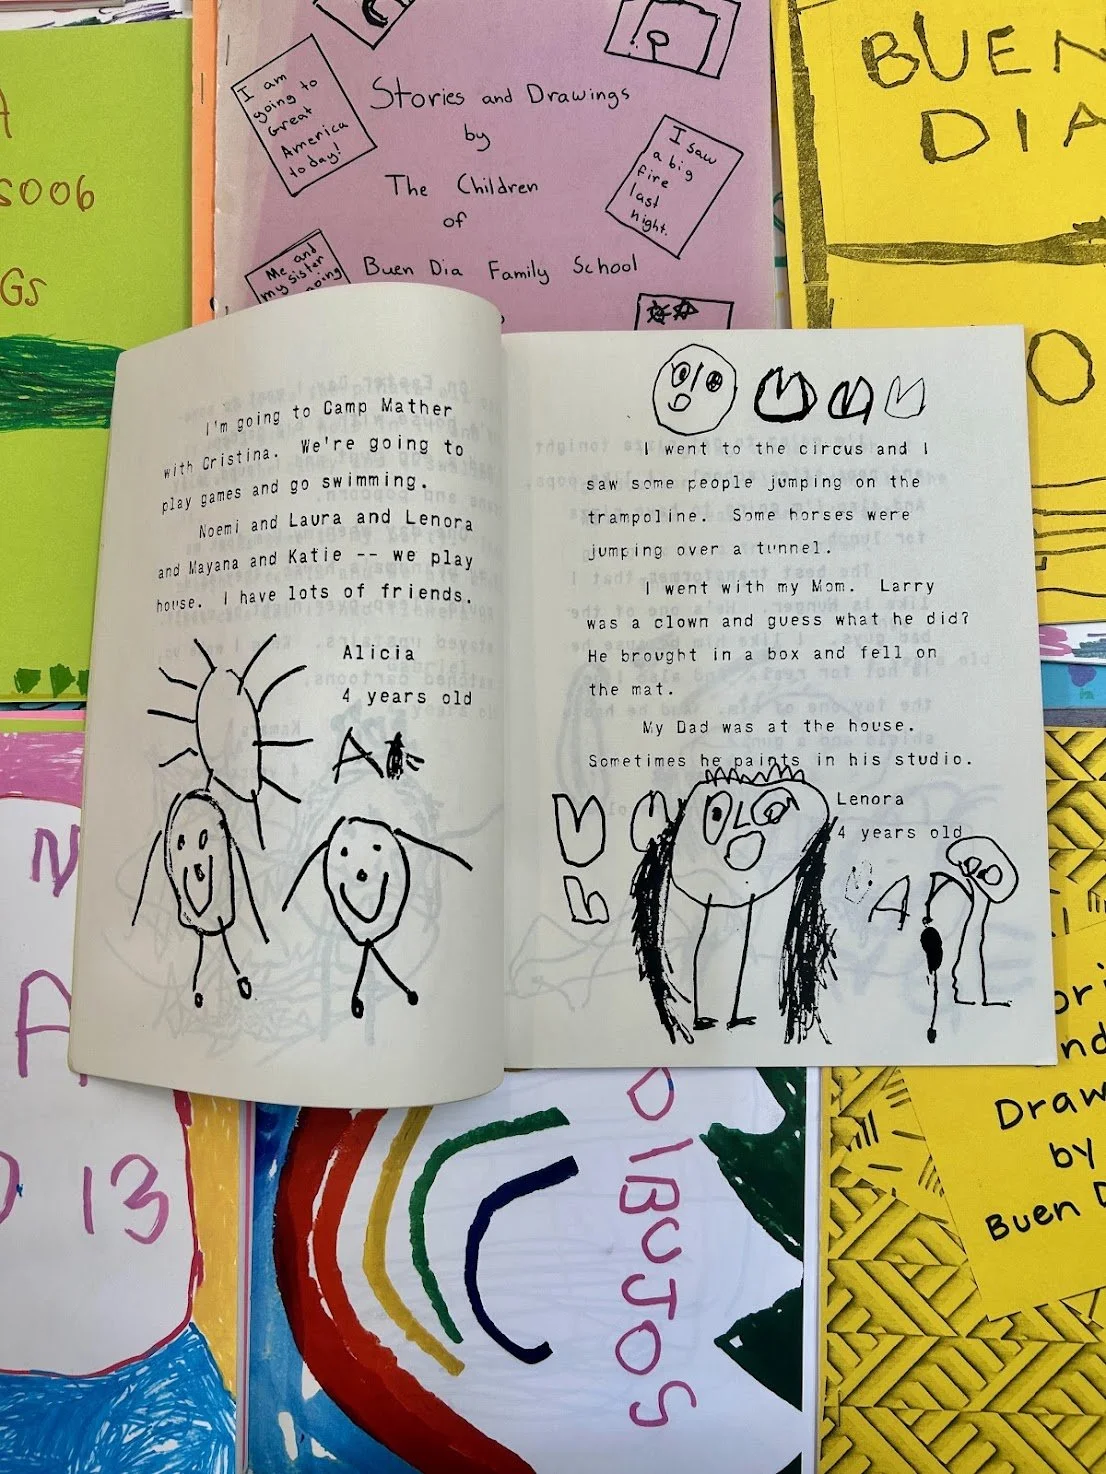 I am
going to
Great
America
today!
Stories and Drawings
by
The Children
of
Buen Dia Family School
I saw
a big
fire
last
night.
Me and
my sister
BUEN
DIA
A
S006
GS
I'm going to Camp Mather
with Cristina. We're going to
play games and go swimming.
Noemi and Laura and Lenora
and Mayana and Katie -- we play
house. I have lots of friends.
Alicia
4 years old
A
I went to the circus and I
saw some people jumping on the
trampoline. Some horses were
jumping over a tunnel.
I went with my Mom. Larry
was a clown and guess what he did?
He brought in a box and fell on
the mat.
My Dad was at the house.
Sometimes he paints in his studio.
Lenora
4 years old
N
A
13
DIBUJOS
Draw
by
Buen D